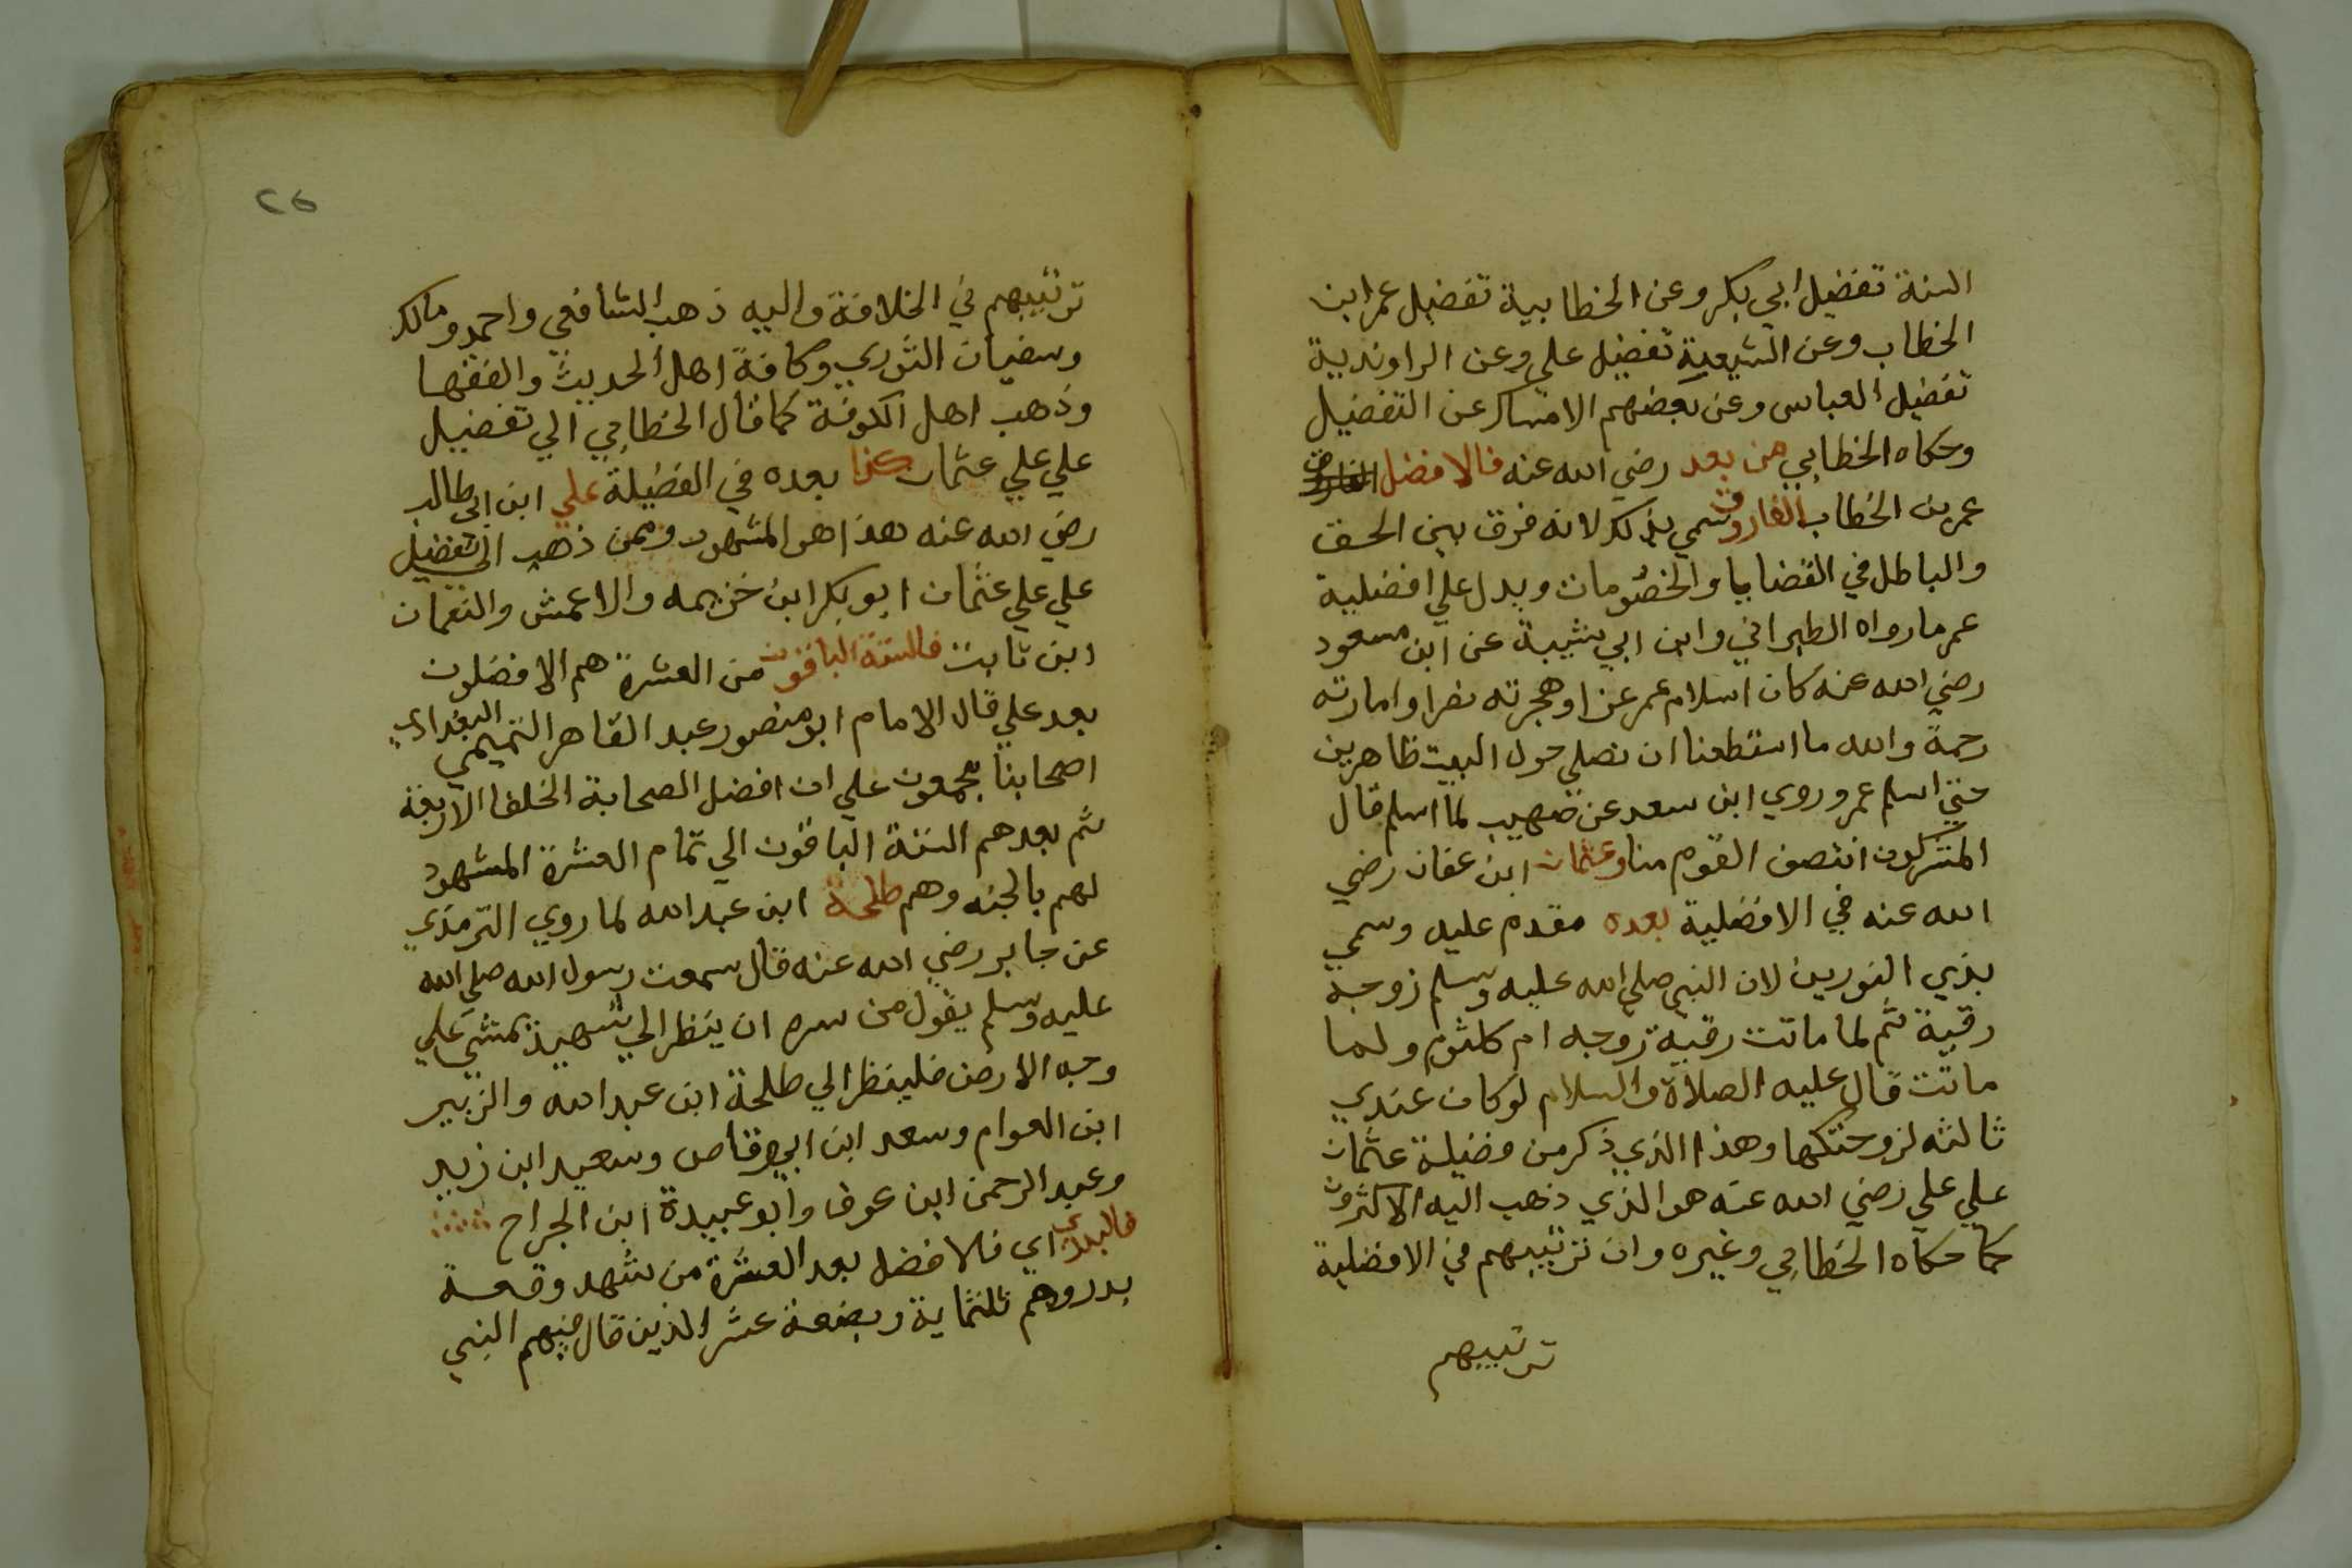 السنة تفضيل ابي بكر وعن الخطابية تفضيل عمر ابن
الخطاب وعن الشيعية تفضيل علي وعن الراوندية
تفضيل العباس وعن بعضهم الامساك عن التفضيل
وحكاه الخطابي من بعد رضي الله عنه فالافضل الفاروق
عمر بن الخطاب الفاروق سمي بذلك لانه فرق بين الحق
والباطل في القضايا والخصومات ويدل علي افضلية
عمر ما رواه الطبراني وابن ابي شيبة عن ابن مسعود
رضي الله عنه كان اسلام عمر عزا وهجرته نصرا وامارته
رحمة والله ما استطعنا ان نصلي حول البيت ظاهرين
حتي اسلم عمر وروي ابن سعد عن صهيب لما اسلم قال
المشركون انتصف القوم منا وعثمان ابن عفان رضي
الله عنه في الافضلية بعده مقدم عليه وسمي
بذي النورين لان النبي صلي الله عليه وسلم زوجه
رقية ثم لما ماتت رقية زوجه ام كلثوم ولما
ماتت قال عليه الصلاة والسلام لو كان عندي
ثالثه لزوجتكها وهذا الذي ذكر من فضيلة عثمان
علي علي رضي الله عنه هو الذي ذهب اليه الاكثرون
كما حكاه الخطابي وغيره وان ترتيبهم في الافضلية
ترتيبهم
٢٦
ترتيبهم في الخلافة واليه ذهب الشافعي واحمد ومالك
وسفيان الثوري وكافة اهل الحديث والفقها
وذهب اهل الكوفة كما قال الخطابي الي تفضيل
علي علي عثمان كذا بعده في الفضيلة علي ابن ابي طالب
رضي الله عنه هذا هو المشهور وممن ذهب الي تفضيل
علي علي عثمان ابو بكر ابن خزيمه والاعمش والنعمان
ابن ثابت فالستة الباقون من العشرة هم الافضلون
بعد علي قال الامام ابو منصور عبد القاهر التميمي البغدادي
اصحابنا مجمعون علي ان افضل الصحابة الخلفا الاربعة
ثم بعدهم الستة الباقون الي تمام العشرة المشهود
لهم بالجنه وهم طلحة ابن عبد الله لما روي الترمذي
عن جابر رضي الله عنه قال سمعت رسول الله صلي الله
عليه وسلم يقول من سره ان ينظر الي شهيد يمشي علي
وجه الارض فلينظر الي طلحة ابن عبد الله والزبير
ابن العوام وسعد ابن ابي وقاص وسعيد ابن زيد
وعبد الرحمن ابن عوف وابو عبيدة ابن الجراح
فالبدري اي فالافضل بعد العشرة من شهد وقعة
بدر وهم ثلثماية وبضعة عشر الذين قال فيهم النبي